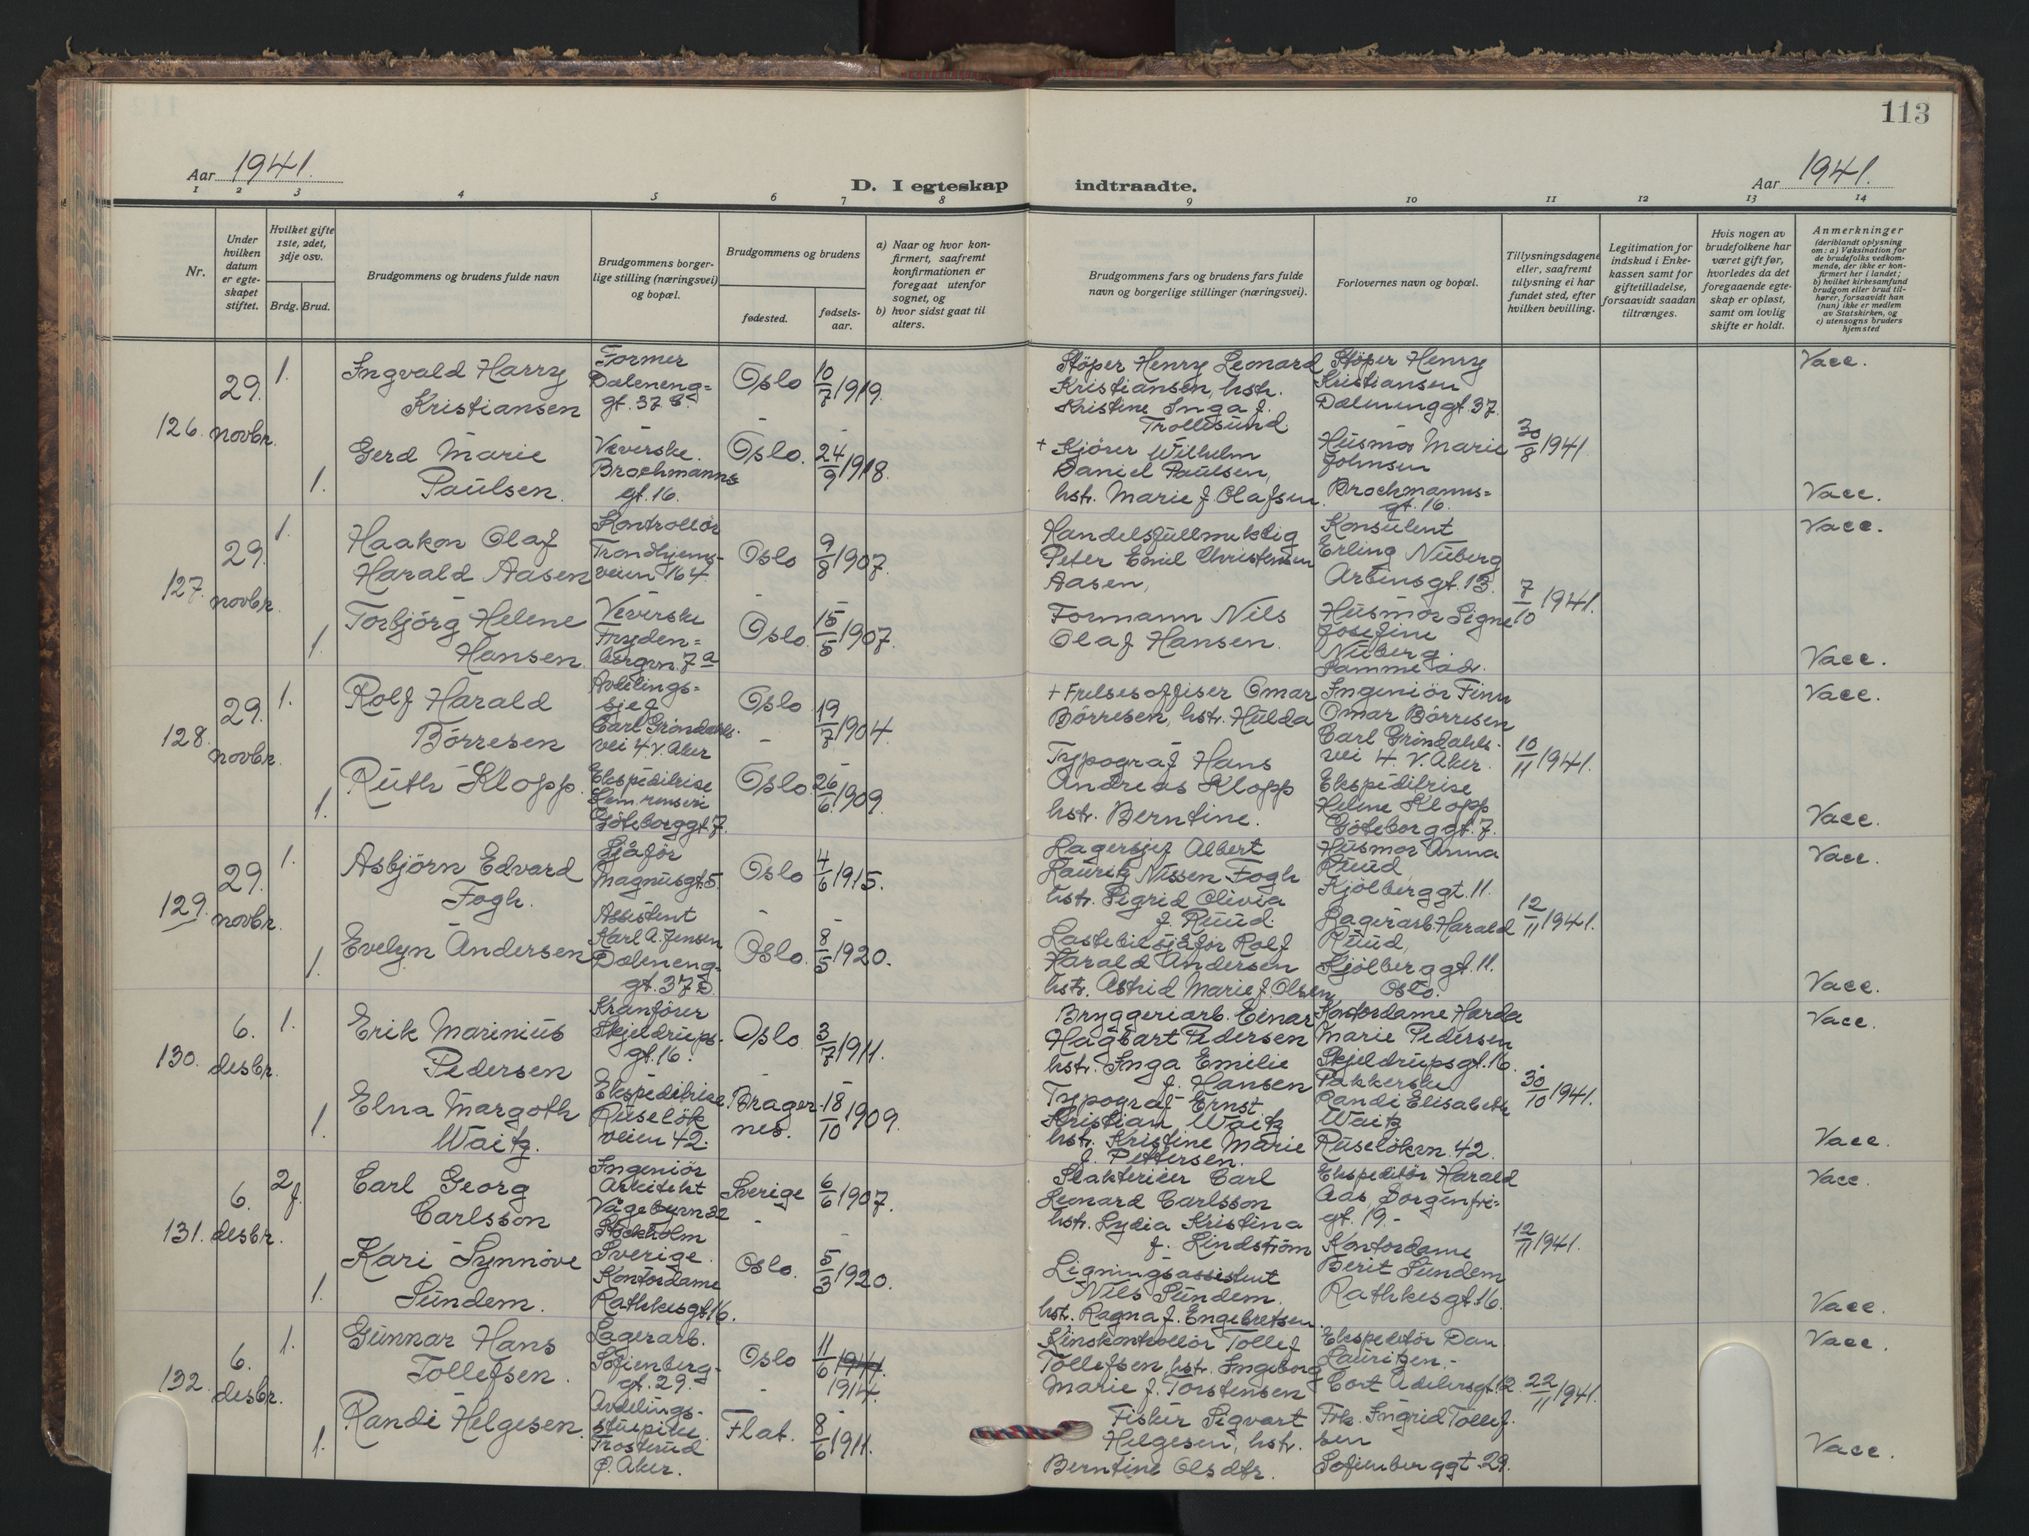 113
Aar 1941.
D. I egteskap indtraadte.
Aar 1941.
1 2 3 4 5 6 7 8 9 10 11 12 13 14
Nr.
Under hvilken datum er egteskapet stiftet.
Hvilket gifte 1ste, 2det, 3dje osv.
Brdg. Brud.
Brudgommens og brudens fulde navn
Brudgommens borgerlige stilling (næringsvei) og bopæl.
Brudgommens og brudens
fødested.
fødselsaar.
a) Naar og hvor konfirmert, saafremt konfirmationen er foregaat utenfor sognet, og
b) hvor sidst gaat til alters.
Brudgommens fars og brudens fars fulde navn og borgerlige stillinger (næringsvei).
Forlovernes navn og bopæl.
Tillysningsdagene eller, saafremt tillysning ei har fundet sted, efter hvilken bevilling.
Legitimation for indskud i Enkekassen samt for giftetilladelse, forsaavidt saadan tiltrænges.
Hvis nogen av brudefolkene har været gift før, hvorledes da det foregaaende egteskap er opløst, samt om lovlig skifte er holdt.
Anmerkninger
(deriblandt oplysning om: a) Vaksination for de brudefolks vedkommende, der ikke er konfirmert her i landet; b) hvilket kirkesamfund brudgom eller brud tilhører, forsaavidt han (hun) ikke er medlem av Statskirken, og c) utensogns bruders hjemsted
126. 29. novbr.
1.
Ingvald Harry
Kristiansen
Former
Dæleneng=
gt. 37 B.
Oslo
10/7 1919.
Støper Henry Leonard
Kristiansen, hstr.
Kristine Inga f.
Trollsund.
Støper Henry
Kristiansen
Dælenenggt. 37.
30/8 1941
Vacc.
1.
Gerd Marie
Paulsen.
Veverske.
Brochmanns
gt. 16.
Oslo.
24/9 1918.
+ Kjører Wilhelm
Daniel Paulsen,
hstr. Marie f. Olafsen.
Husmor Marie
Johnsen
Brochmanns=
gt. 16.
Vacc.
127. 29. novbr.
1.
Haakon Olaf
Harald Aasen
Kontrollør
Trondhjems-
veien 164
Oslo
9/8 1907.
Handelsfullmektig
Peter Emil Christensen
Aasen,
Konsulent
Erling Nüberg
Arbinsgt. 13.
7/10 1941.
Vacc.
1.
Torbjörg Helene
Hansen.
Veverske
Fryden=
bergvn. 7a
Oslo.
15/5 1907.
Formann Nils
Olaf Hansen.
Husmor Signe
Josefine
Nüberg.
Samme adr.
Vacc.
128. 29. novbr.
1.
Rolf Harald
Börresen
Avdelings=
sjef
Carl Grøndahls.
vei 4 V. Aker
Oslo
19/7 1904.
+ Frelsesoffiser Omar
Börresen, hstr. Hulda
Ingeniör Finn
Omar Börresen
Carl Gröndahls.
vei 4. V. Aker.
10/11 1941.
Vacc.
1.
Ruth Klopp.
Ekspeditrise
Hem. renseri
Göteborggt. 7.
Oslo.
26/6 1909.
Typograf Hans
Andreas Klopp
hstr. Berntine.
Ekspeditrise
Helene Klopp
Göteborggt. 7.
Vacc.
129. 29. novbr.
1.
Asbjörn Edvard
Fogh.
Sjåför
Magnusgt. 5.
Oslo
4/6 1915.
Lagersjef Albert
Lauritz Nissen Fogh
hstr. Sigrid Olivia
f. Ruud.
Husmor Anna
Ruud
Kjölberggt. 11.
12/11 1941.
Vacc.
1.
Evelyn Andersen
Assistent
Karl A. Jensen
Dæleneng-
gt. 37 D.
Oslo.
8/5 1920.
Lastebilsjåför Rolf
Harald Andersen
hstr. Astrid Marie f. Olsen,
Lagerarb. Harald
Ruud,
Kjölberggt. 11.
Oslo.
Vacc.
130. 6. desbr.
1.
Erik Marinius
Pedersen
Kranförer
Skjeldrups-
gt. 16.
Oslo
3/7 1911.
Bryggeriarb. Einar
Hagbart Pedersen
hstr. Inga Emilie
f. Hansen
Kontordame Harda
Marie Pedersen
Skjeldrupsgt. 16.
30/10 1941.
Vacc.
1.
Elna Margoth
Waitz.
Ekspeditrise
Ruselök
veien 42.
Bragernes.
18/10 1909.
Typograf Ernst
Kristian Waitz
hstr. Kristine Marie
f. Pettersen.
Pakkerske
Randi Elisabeth
Waitz
Ruselökvn. 42.
Vacc.
131. 6. desbr.
2 f.
Carl Georg
Carlsson
Ingeniör
Arkitekt
Vågebyrn 22
Stockholm
Sverige.
Sverige
6/6 1907.
Slakterieier Carl
Leonard Carlsson
hstr. Lydia Kristina
f. Lindström
Ekspeditör Harald
Aas Sorgenfri-
gt. 19.-
12/11 1941.
Vacc.
1.
Kari Synnöve
Sundem.
Kontordame
Rathkesgt. 16.
Oslo.
5/3 1920.
Ligningsassistent
Nils Sundem,
hstr. Ragna f. Engebretsen.
Kontordame
Berit Sundem
Rathkesgt. 16.
Vacc.
132. 6. desbr.
1.
Gunnar Hans
Tollefsen.
Lagerarb.
Sofienberg-
gt. 29.
Oslo
11/6 1941
1914.
Kinokontrollör Tollef
Tollefsen, hstr. Ingeborg
Marie f. Torstensen
Ekspeditör Dan
Lauritzen.-
Cort Adelersgt. 12.
22/11 1941.
Vacc.
1.
Randi Helgesen.
Avdelings-
stuepike.
Trosterud
Ø. Aker.
Flat.
8/6 1911.
Fisker Sigvart
Helgesen, hstr.
Berntine Olsdtr.
Frk. Ingrid Tollef-
sen
Sofienberggt. 29.
Vacc.